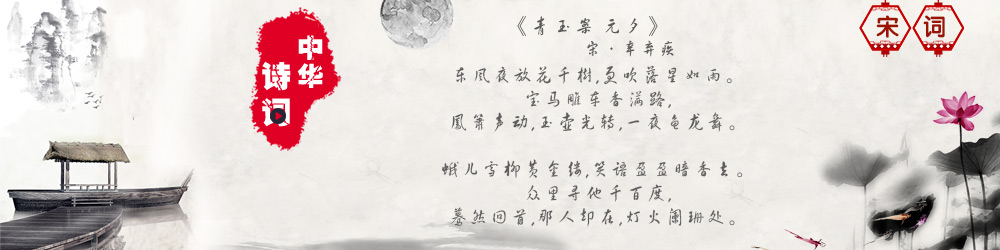 中华
诗词
《青玉案 元夕》
宋·辛弃疾
东风夜放花千樹,更吹落星如雨。
宝马雕车香满路,
鳳箫声动,玉壶光转,一夜鱼龙舞。
蛾儿雪柳黄金缕,笑语盈盈暗香去。
众里寻他千百度,
蓦然回首,那人却在,灯火阑珊处。
宋词